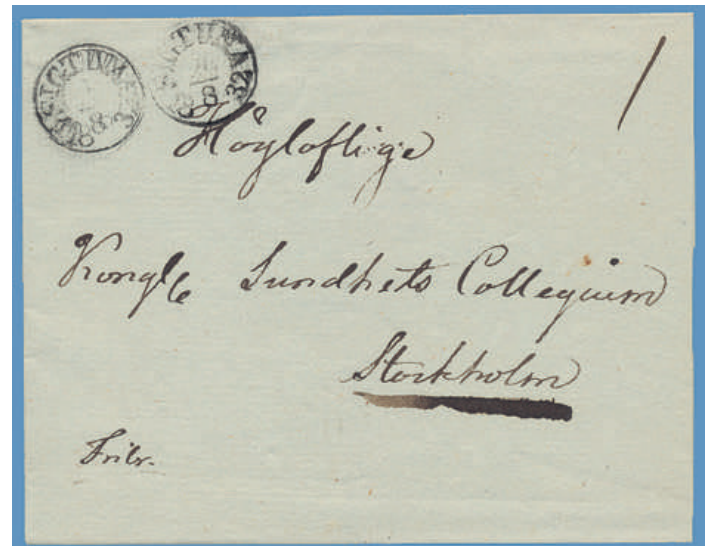 SIGTUNA
8
SIGTUNA
8
1832
Högloflige
Kongle Sundhets Collegium
Stockholm
Fribr.